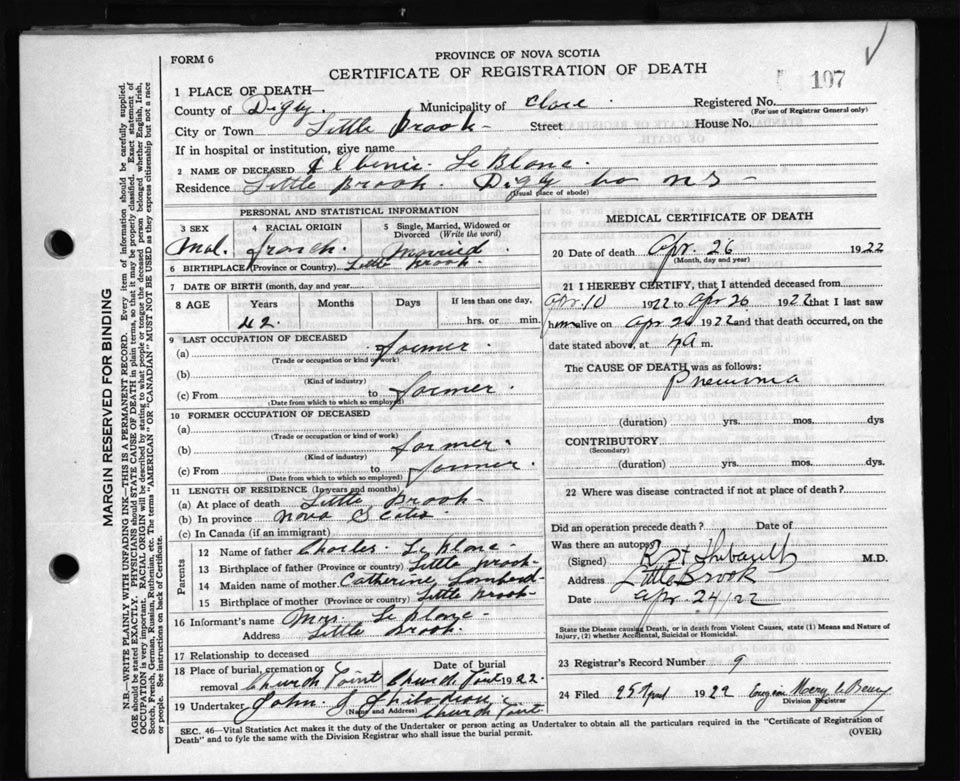 FORM 6
PROVINCE OF NOVA SCOTIA
CERTIFICATE OF REGISTRATION OF DEATH
107
1 PLACE OF DEATH—
County of Digby. Municipality of Clare. Registered No.
(For use of Registrar General only)
City or Town Little Brook Street House No.
If in hospital or institution, give name
2 NAME OF DECEASED Le Blanc.
Residence Little Brook. Digby Co N S
(Usual place of abode)
PERSONAL AND STATISTICAL INFORMATION
3 SEX 4 RACIAL ORIGIN 5 Single, Married, Widowed or Divorced (Write the word)
Mal. french. Married
6 BIRTHPLACE (Province or Country) Little Brook.
7 DATE OF BIRTH (month, day and year)
8 AGE Years Months Days If less than one day,
42. hrs. or min.
9 LAST OCCUPATION OF DECEASED
(a) farmer.
(Trade or occupation or kind of work)
(b)
(Kind of industry)
(c) From to farmer.
(Date from which to which so employed)
10 FORMER OCCUPATION OF DECEASED
(a)
(Trade or occupation or kind of work)
(b) farmer.
(Kind of industry)
(c) From to farmer.
(Date from which to which so employed)
11 LENGTH OF RESIDENCE (In years and months)
(a) At place of death Little Brook
(b) In province Nova Scotia
(c) In Canada (if an immigrant)
Parents
12 Name of father Charles Le Blanc
13 Birthplace of father (Province or country) Little Brook
14 Maiden name of mother Catherine
15 Birthplace of mother (Province or country) Little Brook
16 Informant's name Mrs. Le Blanc
Address Little Brook.
17 Relationship to deceased
18 Place of burial, cremation or removal Church Point Date of burial Church Point 1922.
19 Undertaker John J Thibodeau
(Name and Address) Church Point
MEDICAL CERTIFICATE OF DEATH
20 Date of death Apr. 26 1922
(Month, day and year)
21 I HEREBY CERTIFY, that I attended deceased from
Apr. 10 1922 to Apr 26 1922 that I last saw
him alive on Apr 1922 and that death occurred, on the
date stated above, at m.
The CAUSE OF DEATH was as follows:
Pneumonia
(duration) yrs. mos. dys
CONTRIBUTORY
(Secondary)
(duration) yrs. mos. dys.
22 Where was disease contracted if not at place of death?
Did an operation precede death? Date of
Was there an autopsy?
(Signed) Thibault M.D.
Address Little Brook
Date Apr. 24/22
State the Disease causing Death, or in death from Violent Causes, state (1) Means and Nature of Injury, (2) whether Accidental, Suicidal or Homicidal.
23 Registrar's Record Number 9
24 Filed 25 April 1922
Division Registrar
SEC. 46—Vital Statistics Act makes it the duty of the Undertaker or person acting as Undertaker to obtain all the particulars required in the "Certificate of Registration of
Death" and to fyle the same with the Division Registrar who shall issue the burial permit. (OVER)
MARGIN RESERVED FOR BINDING
N.B.—WRITE PLAINLY WITH UNFADING INK—THIS IS A PERMANENT RECORD. Every item of information should be carefully supplied.
AGE should be stated EXACTLY. PHYSICIANS should STATE CAUSE OF DEATH in plain terms, so that it may be properly classified. Exact statement of
OCCUPATION is very important. RACIAL ORIGIN will be described by stating to what people or tongue the deceased person belonged whether English, Irish,
Scotch, French, German, Russian, Ruthenian, etc. The terms "AMERICAN" OR "CANADIAN" MUST NOT BE USED as they express citizenship but not a race
or people. See instructions on back of Certificate.